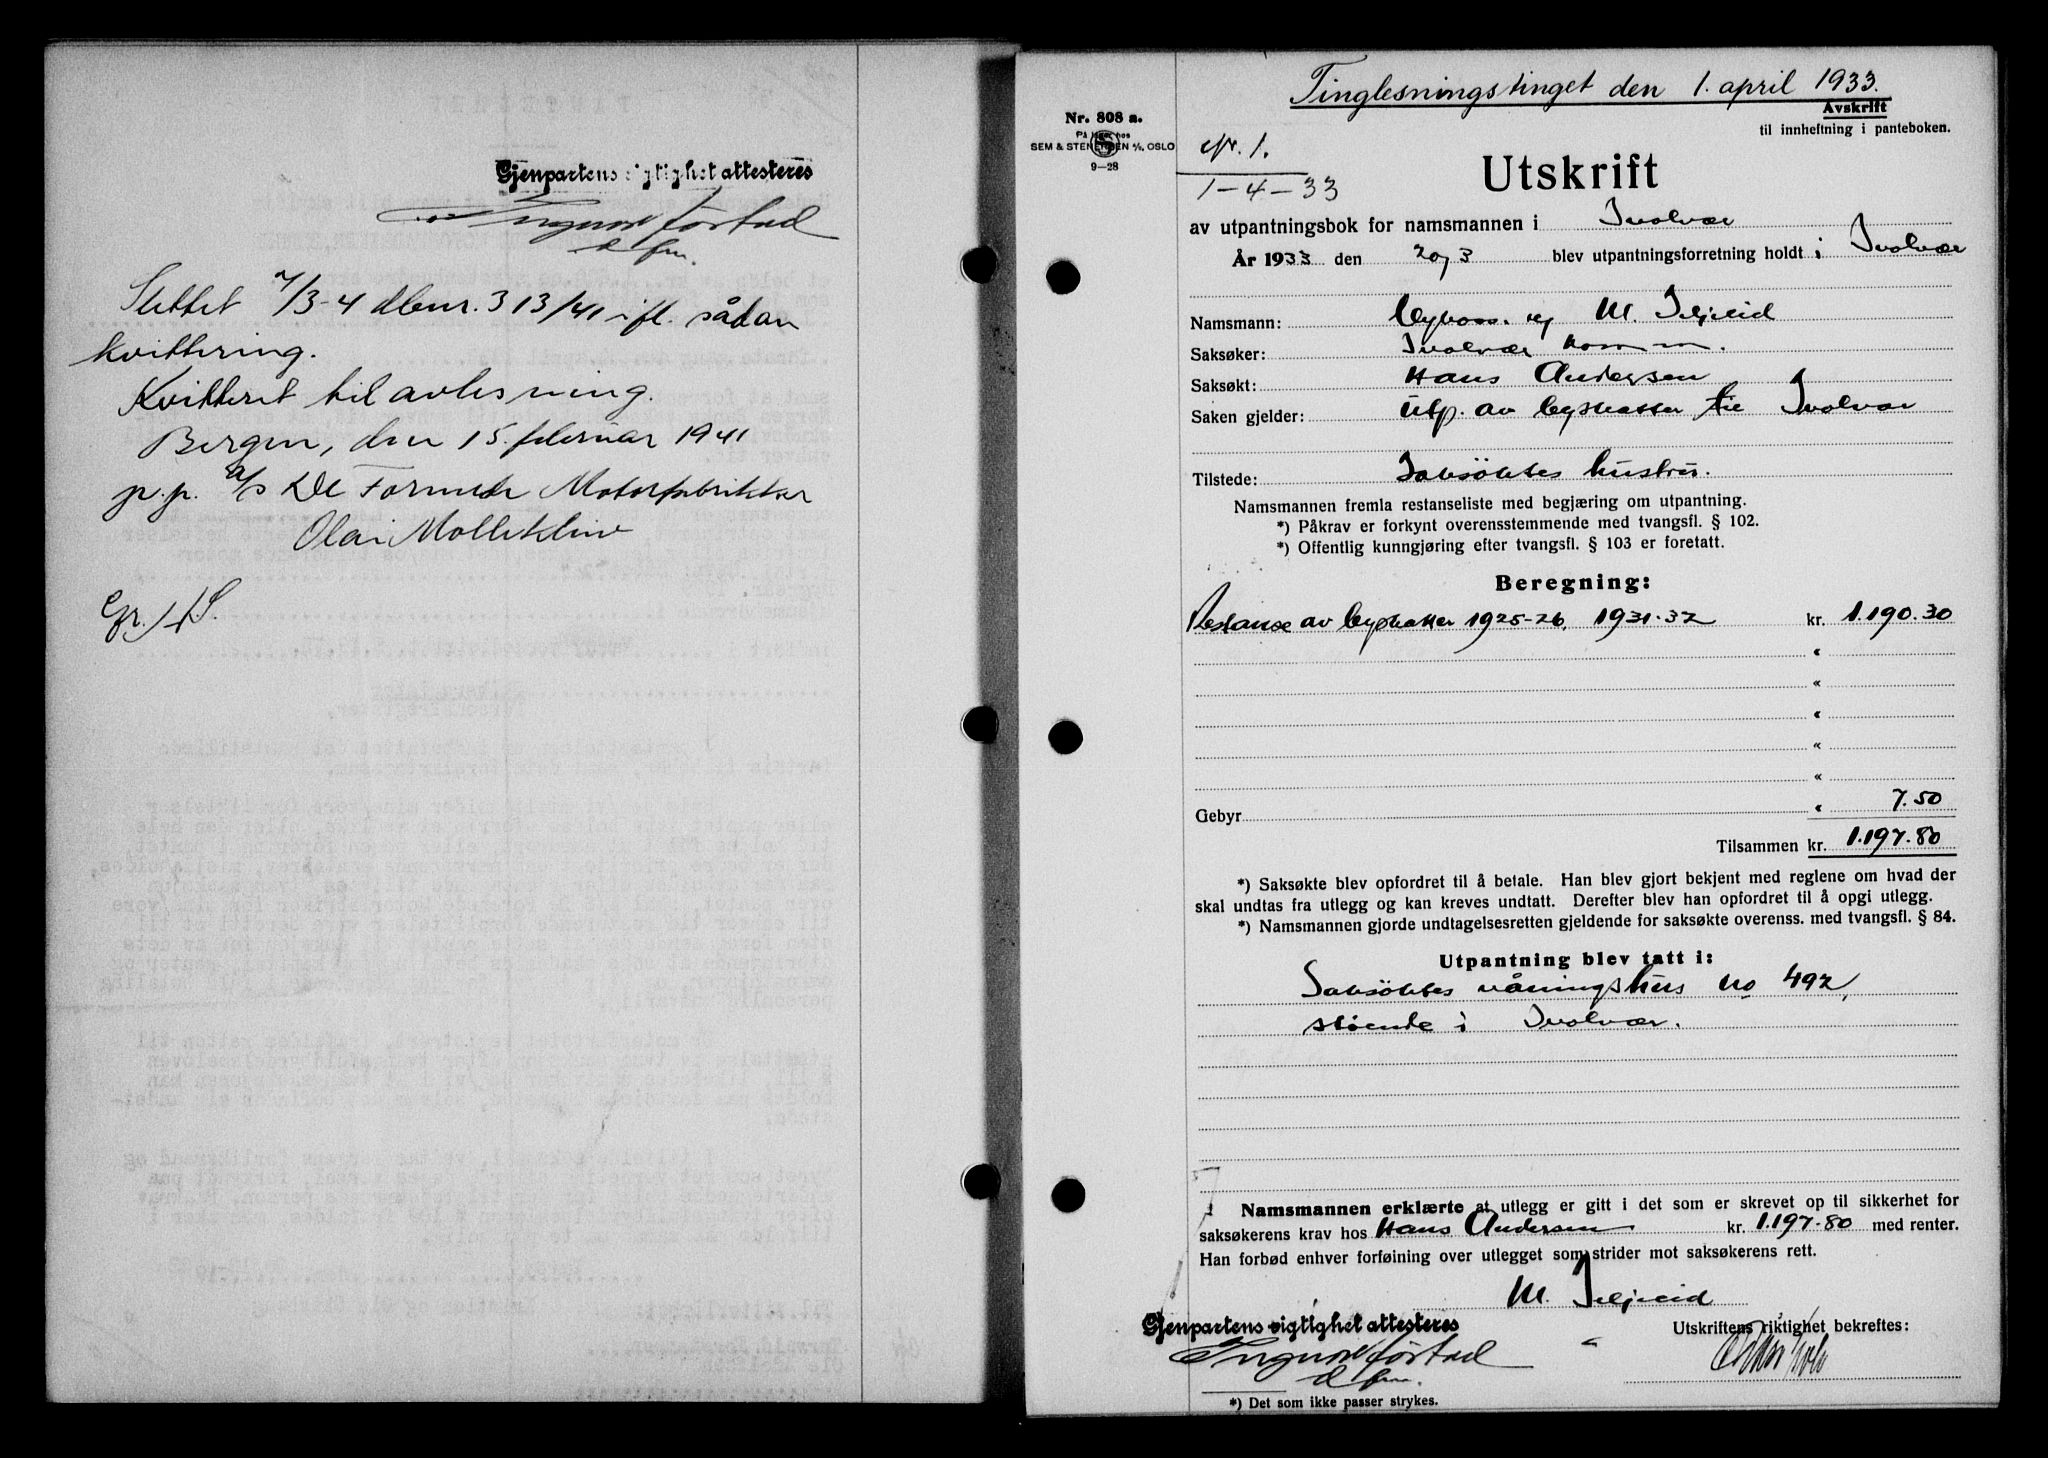 Gjenpartens rigtighet attesteres
Slettet 7/3-41 dbnr. 313/41 ifl. sådan
kvittering.
Kvitteret til avlesning.
Bergen, den 15. februar 1941
p.p. a/s De Forenede Motorfabrikker
Gr.
Tinglesningstinget den 1. april 1933.
Avskrift
til innheftning i panteboken.
Nr. 808 a.
På lager hos
SEM & STENERSEN A/S, OSLO
9—28
Nr. 1.
1-4-33
Utskrift
av utpantningsbok for namsmannen i Svolvær
År 1933 den 20/3 blev utpantningsforretning holdt i Svolvær
Namsmann: M.
Saksøker: Svolvær komm.
Saksøkt: Hans Andersen
Saken gjelder: Utp. av byskatter til Svolvær
Tilstede: Saksöktes hustru.
Namsmannen fremla restanseliste med begjæring om utpantning.
*) Påkrav er forkynt overensstemmende med tvangsfl. § 102.
*) Offentlig kunngjøring efter tvangsfl. § 103 er foretatt.
Beregning:
Restanse av byskatter 1925-26, 1931-32 kr. 1.190.30
"
"
"
"
"
Gebyr " 7.50
Tilsammen kr. 1.197.80
*) Saksøkte blev opfordret til å betale. Han blev gjort bekjent med reglene om hvad der
skal undtas fra utlegg og kan kreves undtatt. Derefter blev han opfordret til å opgi utlegg.
*) Namsmannen gjorde undtagelsesretten gjeldende for saksøkte overenss. med tvangsfl. § 84.
Utpantning blev tatt i:
Saksöktes våningshus no 492,
stående i Svolvær.
Namsmannen erklærte at utlegg er gitt i det som er skrevet op til sikkerhet for
saksøkerens krav hos Hans Andersen kr. 1.197.80 med renter.
Han forbød enhver forføining over utlegget som strider mot saksøkerens rett.
M.
Gjenpartens rigtighet attesteres
Utskriftens riktighet bekreftes:
*) Det som ikke passer strykes.